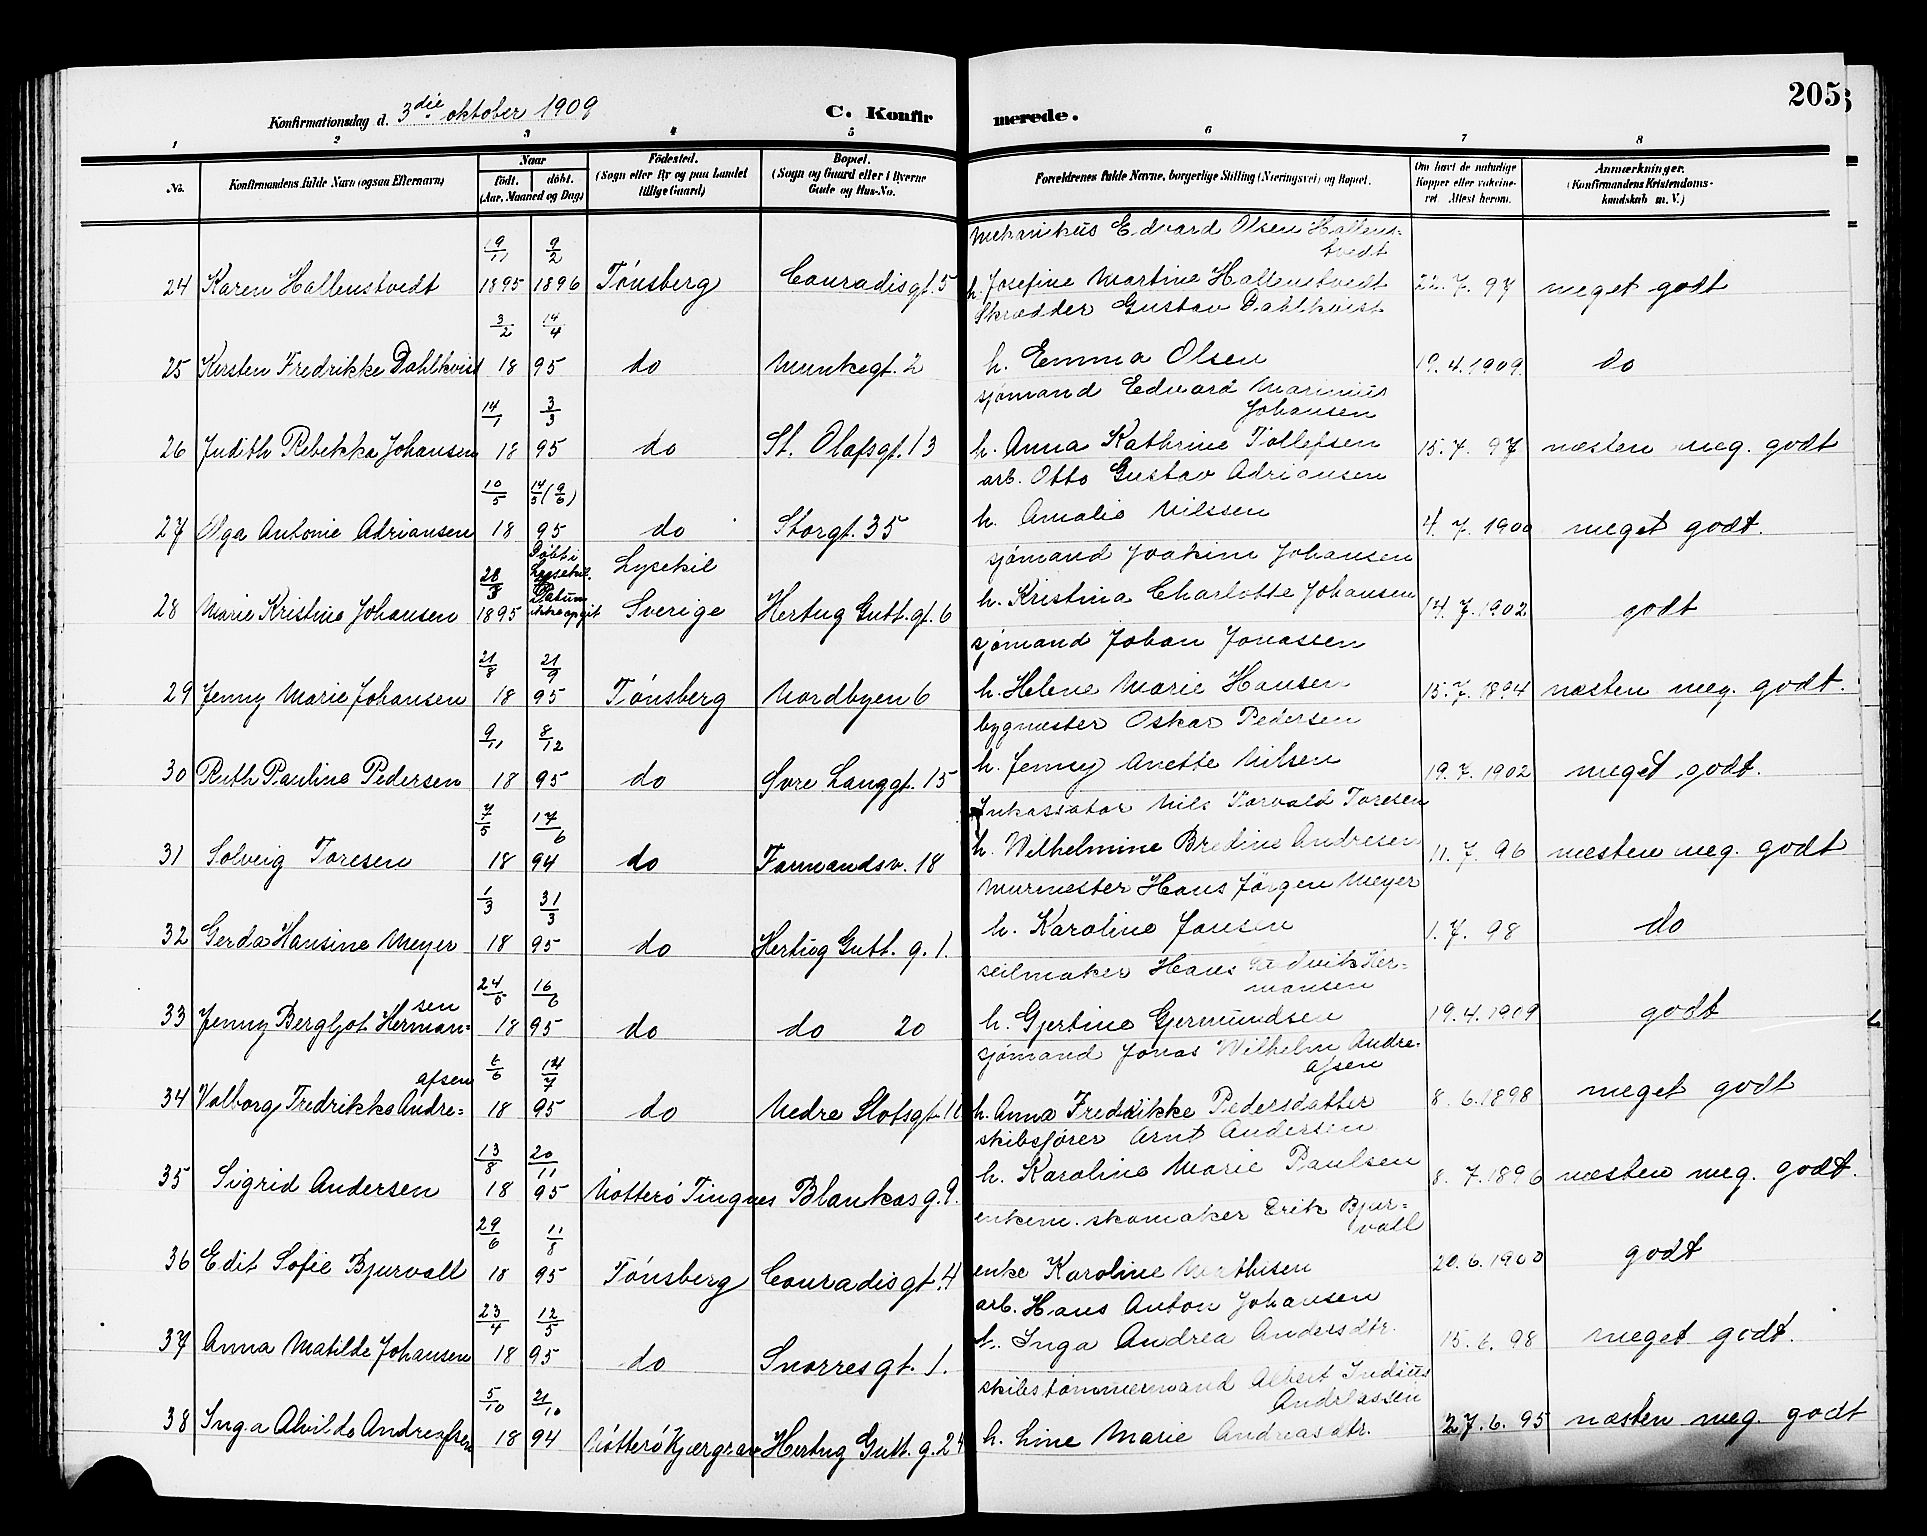 205
Konfirmationsdag d. 3die oktober 1909 C. Konfirmerede.
1 2 3 4 5 6 7 8
No. Konfirmandens fulde Navn (ogsaa Efternavn) Naar født. døbt. (Aar, Maaned og Dag) Fødested. (Sogn eller By og paa Landet tillige Gaard) Bopæl. (Sogn og Gaard eller i Byerne Gade og Hus-No. Forældrenes fulde Navne, borgerlige Stilling (Næringsvei) og Bopæl. Om havt de naturlige Kopper eller vaksineret. Attest herom. Anmærkninger. (Konfirmandens Kristendomskundskab m. V.)
19/11 9/2 Mekanikus Edvard Olsen Hallens-
tvedt
24 Karen Hallenstvedt 1895 1896 Tönsberg Conradisgt. 5 h. Josefine Martine Hallenstvedt 22. 7. 97 meget godt
3/2 14/4 Skrædder Gustav Dahlkvist
25 Kersten Fredrikke Dahlkvist 18 95 do Munkegt. 2 h. Emma Olsen 19. 4. 1909 do
14/1 3/3 sjömand Edvard Marinius
Johansen
26 Judith Rebekka Johansen 18 95 do St. Olafsgt. 13 h. Anna Kathrine Tollefsen 15. 7. 97 næsten meg. godt
10/5 14/5 (9/6) arb. Otto Gustav Adriansen
27 Olga Antonie Adriansen 18 95 do Storgt. 35 h. Amalie Nilssen 4. 7. 1900 meget godt.
28/3 Döbt i Lysekil. Datum ikke opgit Lysekil sjömand Joakim Johansen
28 Marie Kristine Johansen 1895 Sverige Hertug Gutt. gt. 6 h. Kristina Charlotte Johansen 14. 7. 1902 godt
21/8 21/9 sjömand Johan Jonassen
29 Jenny Marie Johansen 18 95 Tönsberg Nordbyen 6 h. Helene Marie Hansen 15. 7. 1894 næsten meg. godt.
9/11 8/12 bygmester Oskar Pedersen
30 Ruth Pauline Pedersen 18 95 do Övre Langgt. 15 h. Jenny Anette Nilsen 19. 7. 1902 meget godt.
7/5 17/6 Inkassator Nils Torvald Toresen
31 Solveig Toresen 18 94 do Farmandsv. 18 h. Wilhelmine Bredine Andresen 11. 7. 96 næsten meg. godt
1/3 31/3 Murmester Hans Jörgen Meyer
32 Gerda Hansine Meyer 18 95 do Hertug Gutt. g. 1. h. Karoline Jansen 1. 7. 98 do
24/5 16/6 seilmaker Hans Ludvik Her-
mansen
33 Jenny Bergljot Herman-sen 18 95 do do 20 h. Gjertine Gjermundsen 19. 4. 1909 godt
6/6 14/7 sjömand Jonas Wilhelm Andre-
asen
34 Valborg Fredrikke Andre-asen 18 95 do Nedre Slotsgt. h. Anna Fredrikke Pedersdatter 8. 6. 1898 meget godt
13/8 20/11 skibsförer Arnt Andersen
35 Sigrid Andersen 18 95 Nötterö Tingnes Blankas g. 9. h. Karoline Marie Paulsen 8. 7. 1896 næsten meg. godt.
29/6 11/8 enkem. skomaker Erik Bjur-
vall
36 Edit Sofie Bjurvall 18 95 Tönsberg Conradis gt. 4 enke Karoline Mathisen 20. 6. 1900 godt
23/4 12/5 arb. Hans Anton Johansen
37 Anna Matilde Johansen 18 95 do Snorres gt. 1. h. Inga Andrea Andersdtr. 15. 6. 98 meget godt.
5/10 21/10 skibstömmermand Albert Indius
Andreassen
38 Inga Alvilde Andreassen 18 94 Nötterö Kjærgrav Hertug Gutt. g. 24 h. Line Marie Andreasdtr. 27. 6. 95 næsten meg. godt